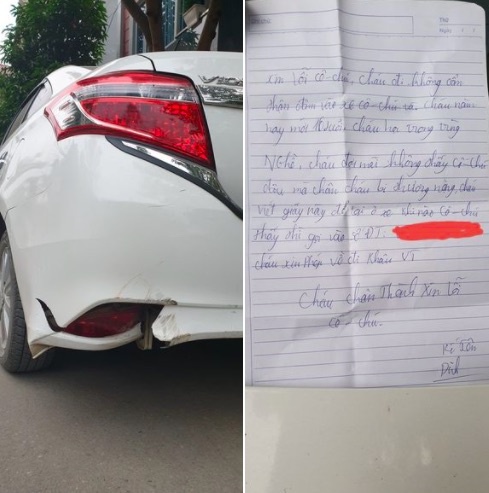 Thứ
Ngày
Xin lỗi cô-chú, cháu đi không cẩn
thận đâm vào xe cô-chú và cháu năm
nay mới tuổi cháu học trong
Nghề, cháu đợi mãi không thấy cô-chú
đâu mà chân cháu bị thương nặng, cháu
viết giấy này để lại ở xe khi nào cô-chú
thấy thì gọi vào số ĐT:
cháu xin phép về đi khâu VT
Cháu chân Thành Xin Lỗi
cô-chú.
Kí tên